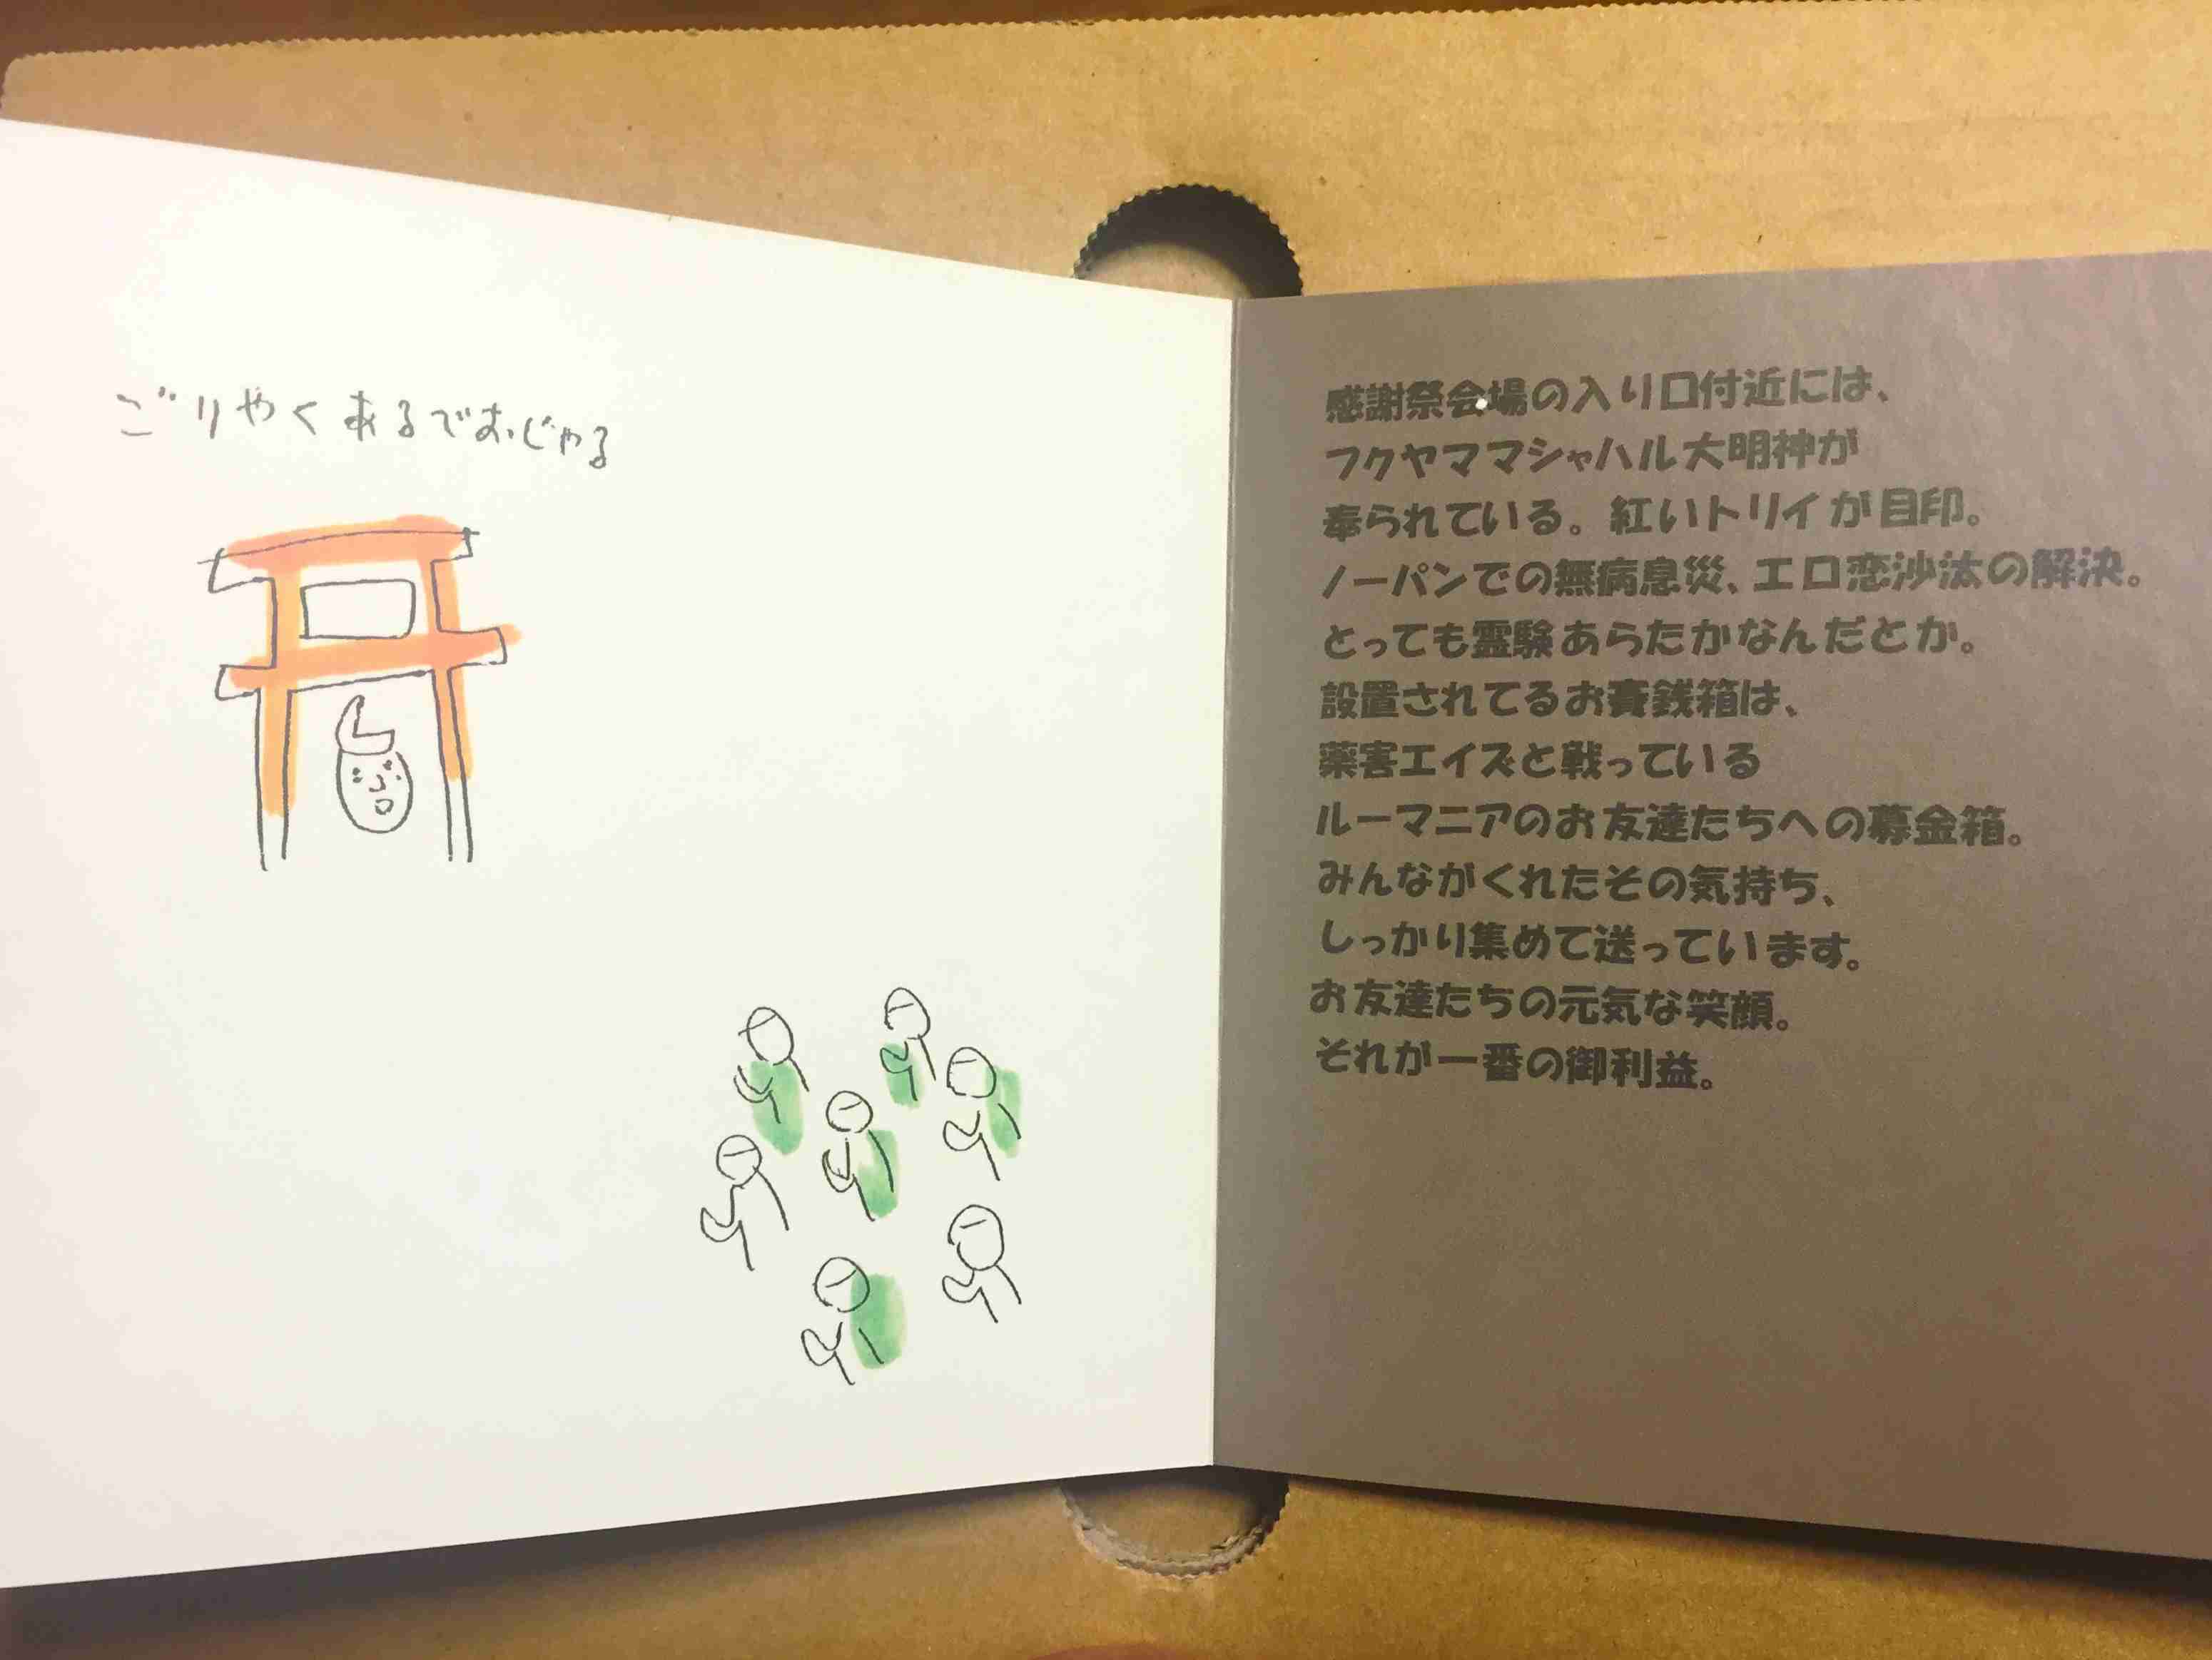 ごりやくあるでおじゃる
感謝祭会場の入り口付近には、
フクヤママシャハル大明神が
奉られている。紅いトリイが目印。
ノーパンでの無病息災、エロ恋沙汰の解決。
とっても霊験あらたかなんだとか。
設置されてるお賽銭箱は、
薬害エイズと戦っている
ルーマニアのお友達たちへの募金箱。
みんながくれたその気持ち、
しっかり集めて送っています。
お友達たちの元気な笑顔。
それが一番の御利益。